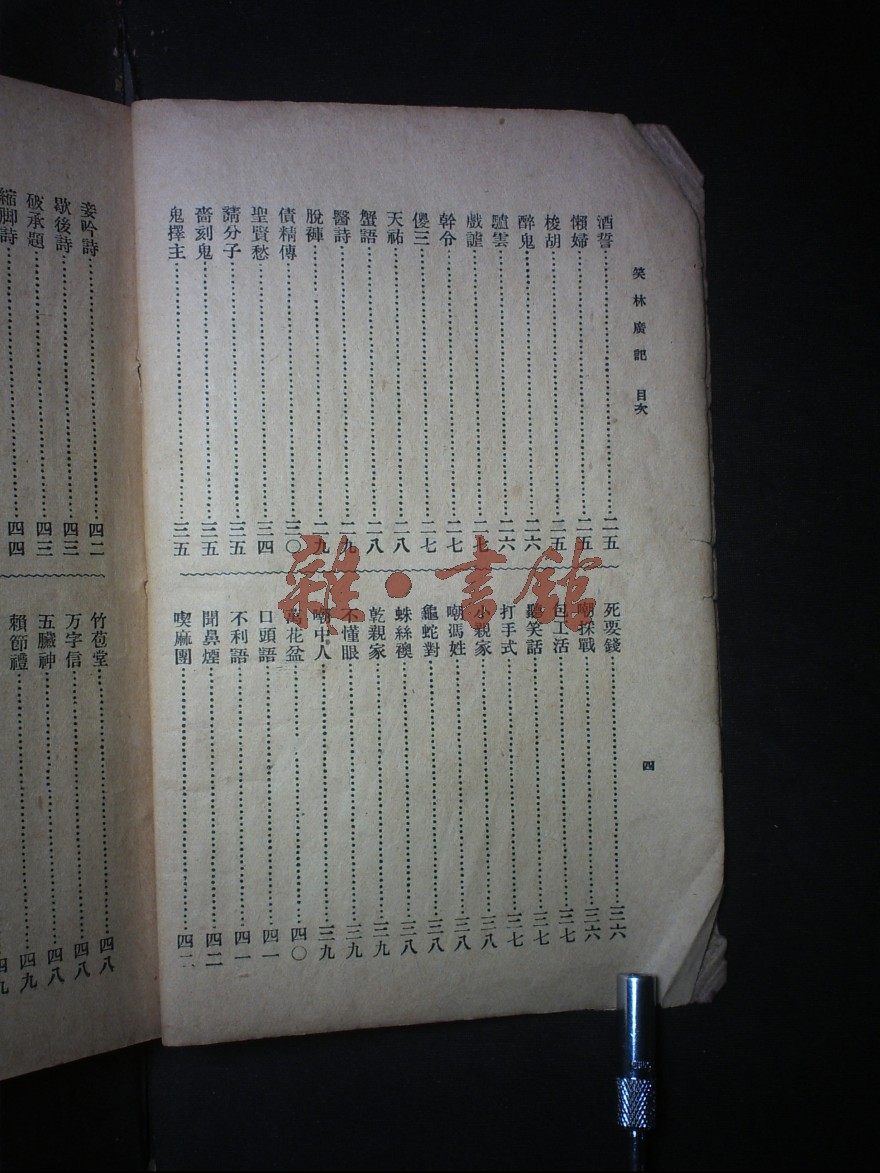 笑林廣記 目次
四
酒誓 二五
懶婦 二五
梭胡 二五
醉鬼 二六
驢雲 二六
戲謔 二七
幹令 二七
儍三 二七
天祐 二八
蟹語 二八
醫詩 二九
脫褲 二九
債精傳 三〇
聖賢愁 三四
請分子 三五
嗇刻鬼 三五
鬼擇主 三五
死要錢 三六
嘲採戰 三六
包工活 三七
聽笑話 三七
打手式 三七
小親家 三八
嘲馮姓 三八
龜蛇對 三八
蛛絲襖 三八
乾親家 三九
不懂眼 三九
嘲中人 三九
萬花盆 四〇
口頭語 四一
不利語 四一
聞鼻煙 四二
喫麻團 四二
妾吟詩 四二
歇後詩 四三
破承題 四三
縮脚詩 四四
竹苞堂 四八
万字信 四八
五臟神 四八
賴節禮 四九
雜·書館